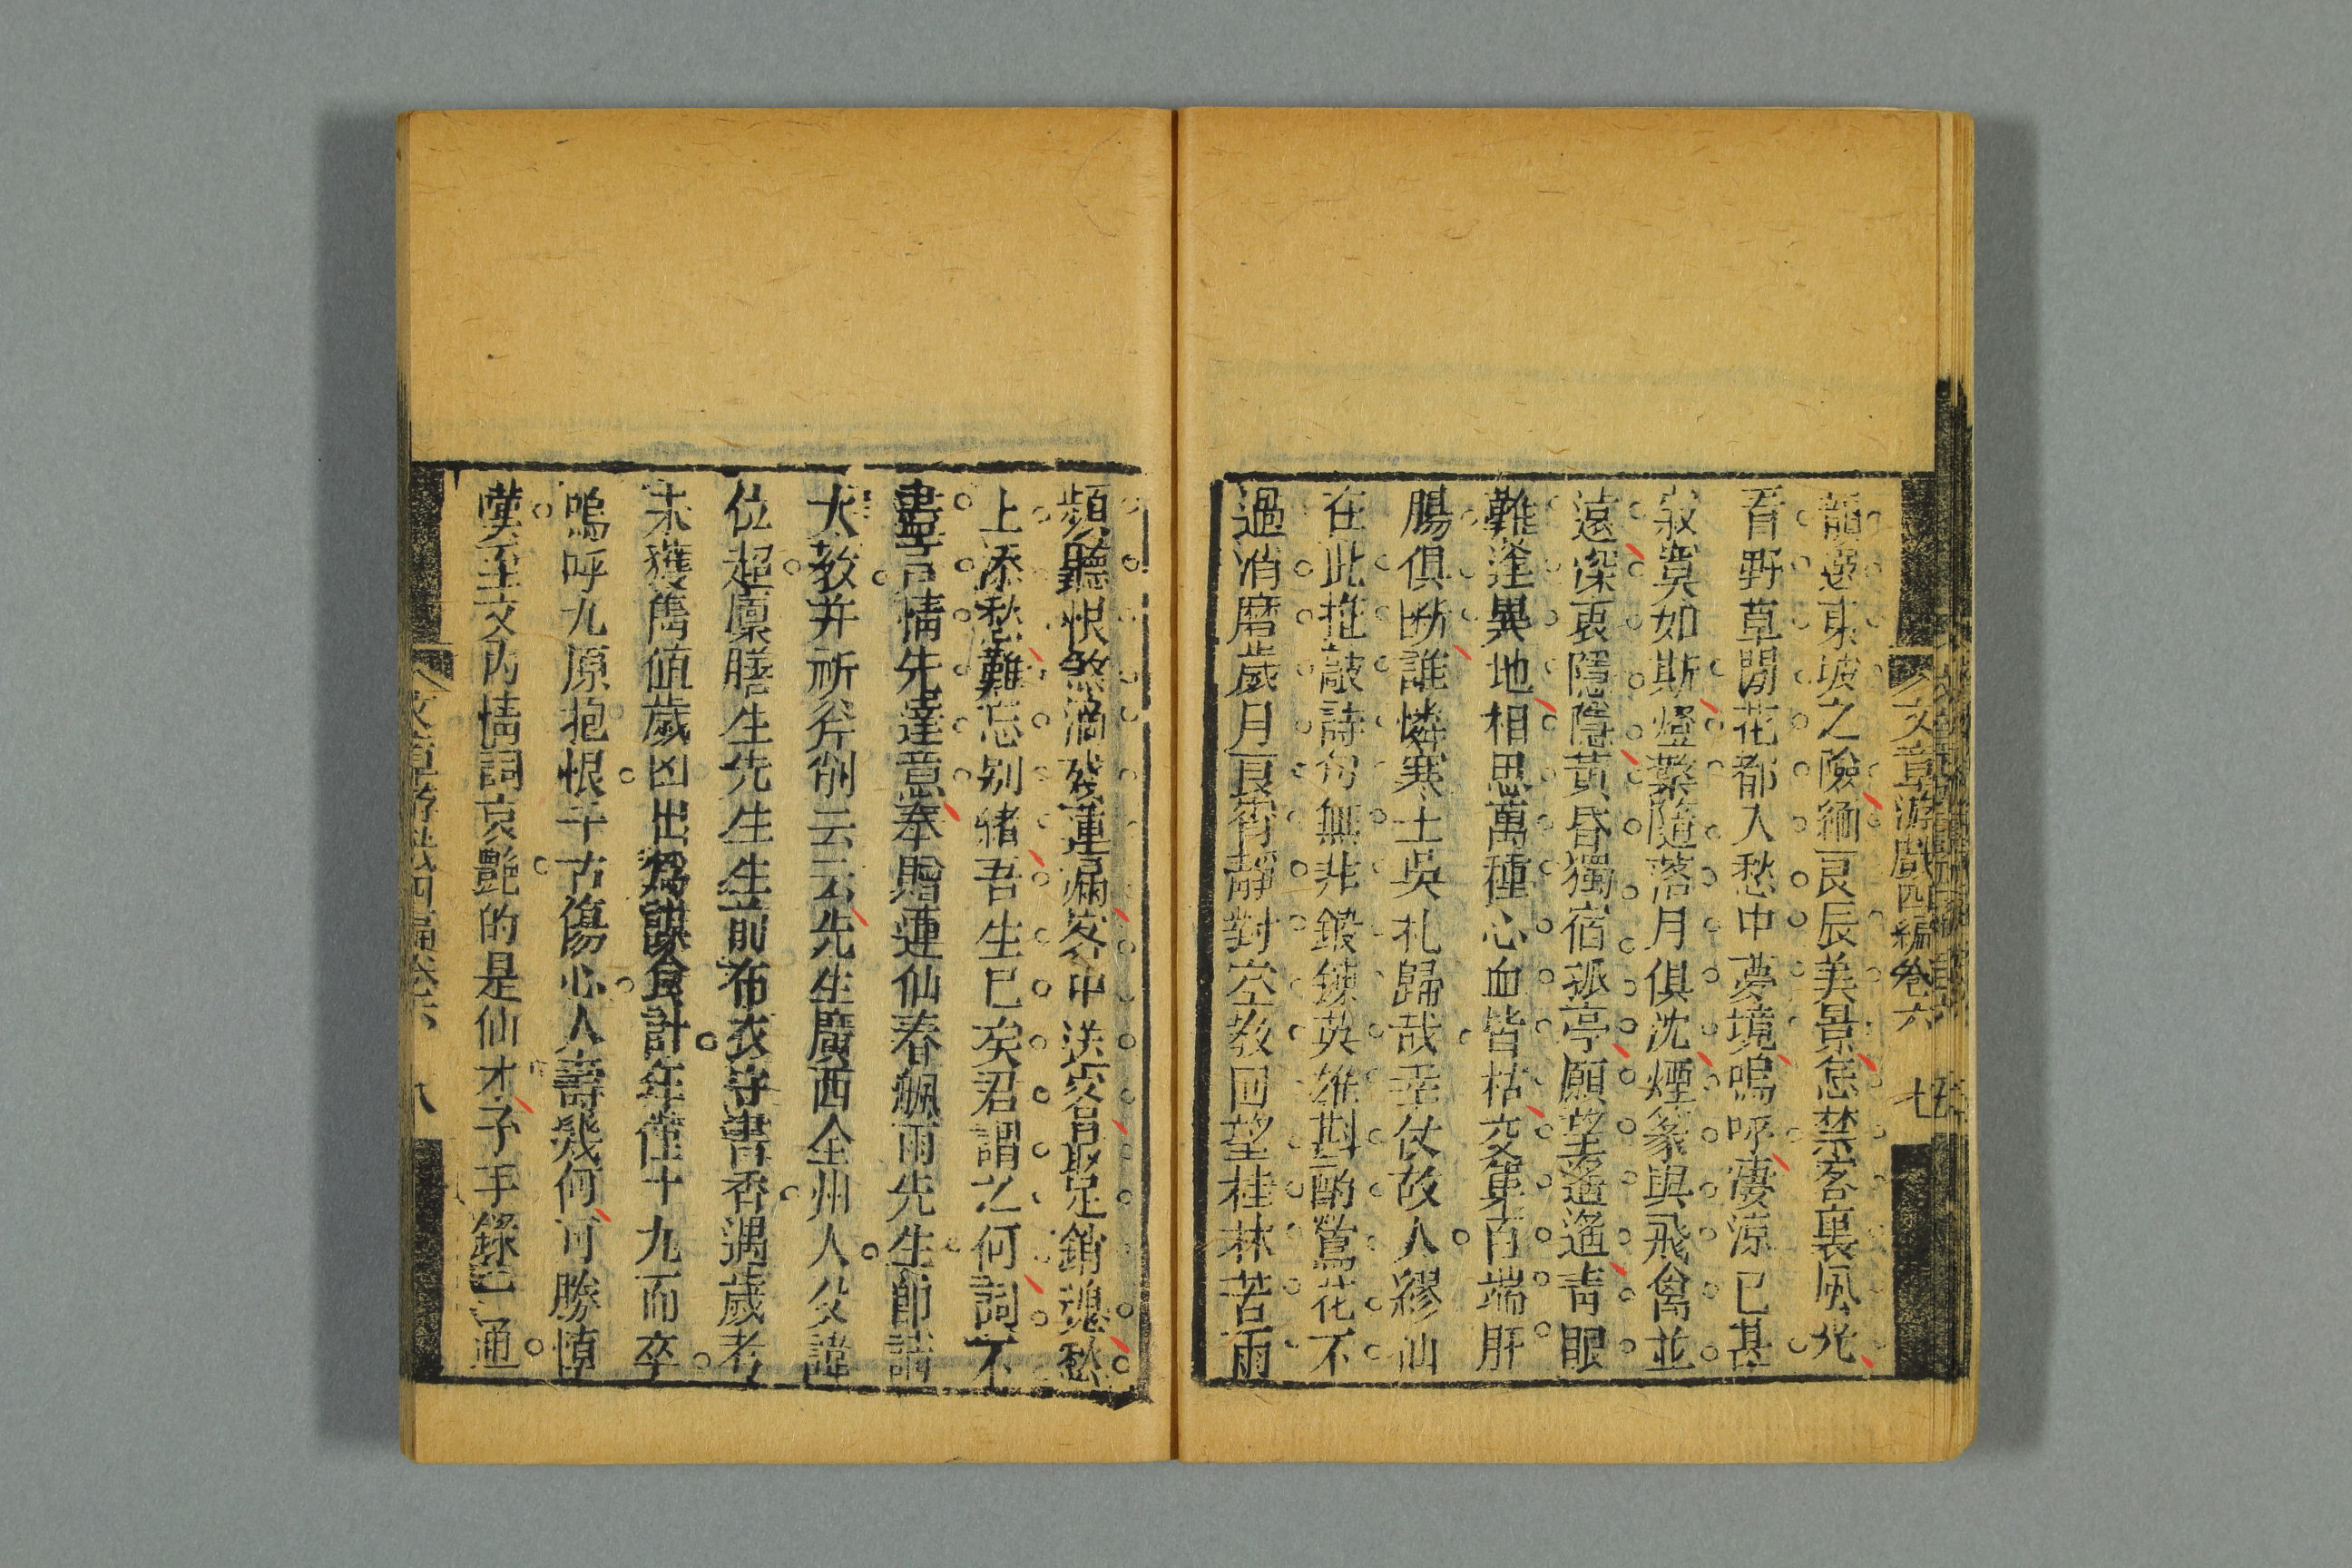 文章游戲四編卷六 七
韻選東坡之險徊良辰美景怎禁客裏風光
看野草閒花都入愁中夢境嗚呼淒涼已甚
寂寞如斯燈蘂隨落月俱沈煙篆與飛禽並
遠深衷隱隱黃昏獨宿孤亭願望遙遙青眼
難逢異地相思萬種心血皆枯交集百端肝
腸俱斷誰憐寒士吳札歸哉垂仗故人繆仙
在此推敲詩句無非鍛鍊英雄斟酌鶯花不
過消磨歲月良宵靜對空教回望桂林苦雨
頻聽恨煞滴殘蓮漏客中送客腎足銷魂愁
上添愁難忘别緒吾生已矣君謂之何詞不
盡言情先達意奉贈蓮仙春颿兩先生節請
大教并祈斧削云云先生廣西全州人父諱
位超廩膳生先生生前布衣守書香遇歲考
未獲雋値歲凶出爲謀食計年僅十九而卒
嗚呼九原抱恨千古傷心人壽幾何可勝悼
嘆至文內情詞哀艷的是仙才予手錄一通
文章游戲四編卷六 八